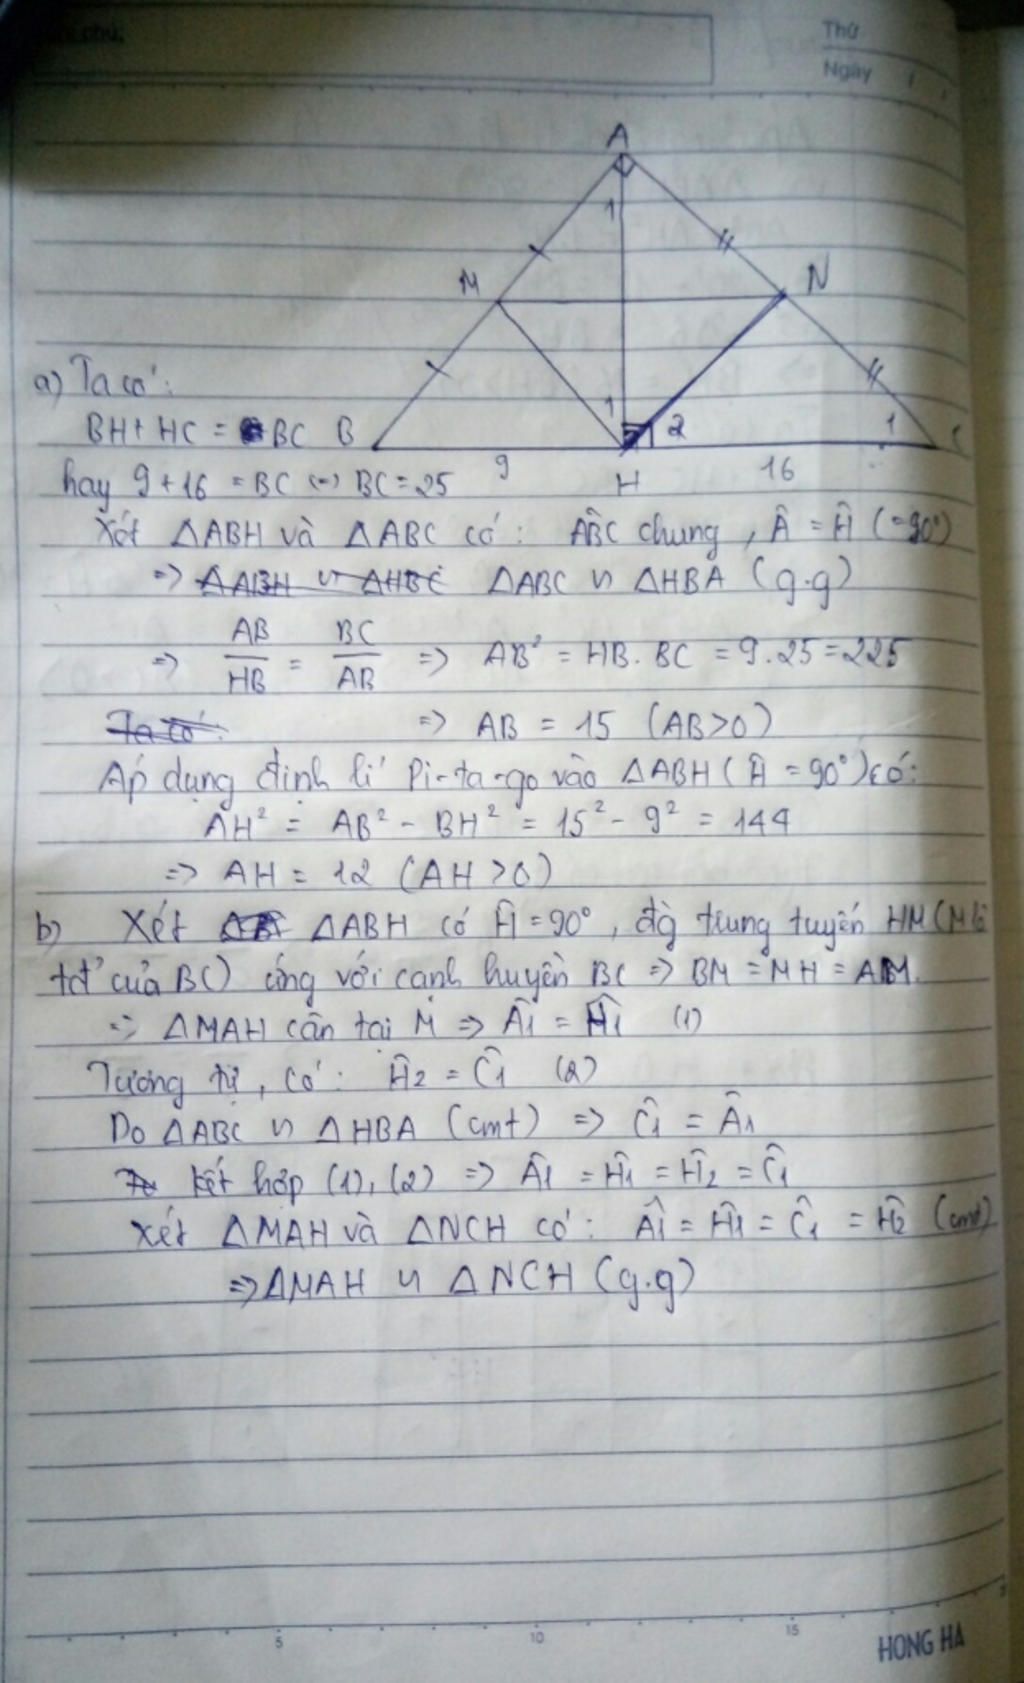 Thứ
Ngày
A
1
M
N
a) Ta có:
BH + HC = BC
B
1
2
1
C
9
H
16
hay 9 + 16 = BC (=) BC = 25
Xét ΔABH và ΔABC có: ABC chung, Â = Ĥ (=90°)
=> ΔABH ∽ ΔHBC ΔABC ∽ ΔHBA (g.g)
=> AB/HB = BC/AB => AB² = HB. BC = 9.25 = 225
Ta có: => AB = 15 (AB>0)
Áp dụng định lí Pi-ta-go vào ΔABH (Ĥ = 90°) có:
AH² = AB² - BH² = 15² - 9² = 144
=> AH = 12 (AH >0)
b) Xét ΔABH có Ĥ = 90°, đg trung tuyến HM (M là
tđ' của BC) ứng với cạnh huyền BC => BM = MH = AM.
=> ΔMAH cân tại M => Â1 = Ĥ1 (1)
Tương tự, có: Ĥ2 = Ĉ1 (2)
Do ΔABC ∽ ΔHBA (cmt) => Ĉ1 = Â1
Kết hợp (1), (2) => Â1 = Ĥ1 = Ĥ2 = Ĉ1
Xét ΔMAH và ΔNCH có: Â1 = Ĥ1 = Ĉ1 = Ĥ2 (cmt)
=> ΔMAH ∽ ΔNCH (g.g)
5 10 15
HONG HA